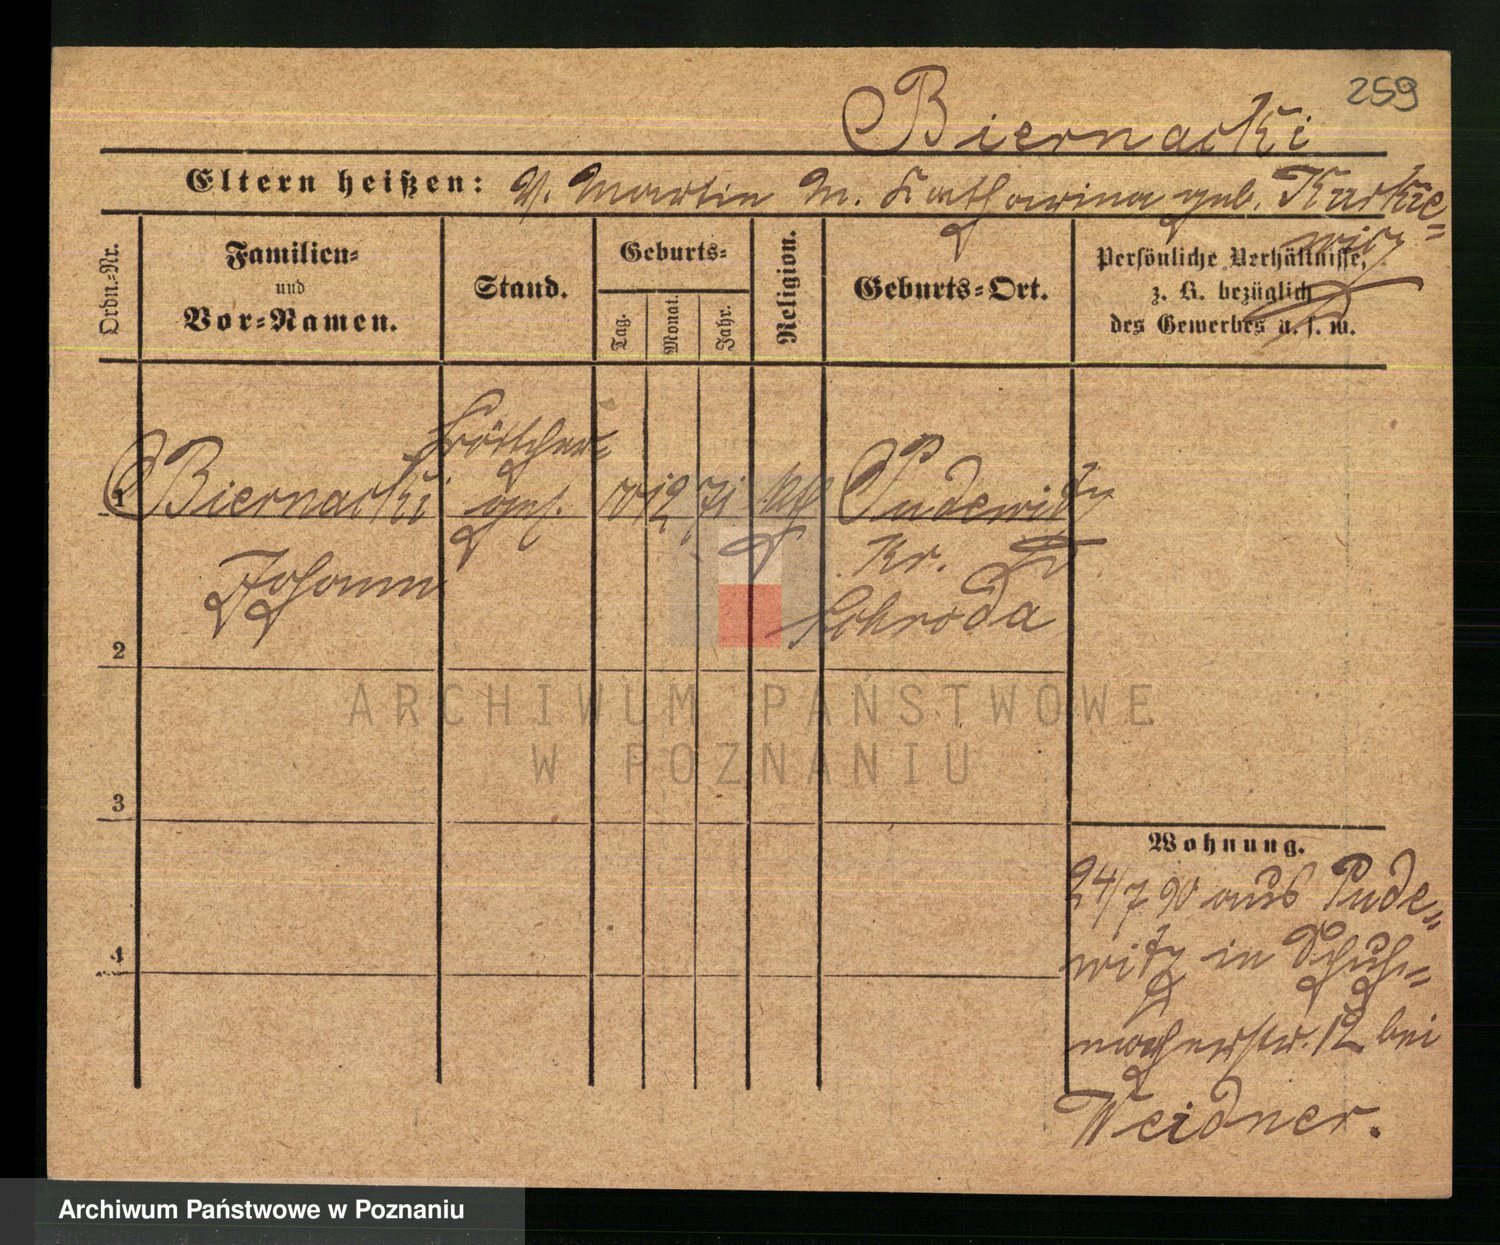 259
Biernacki
Eltern heißen: V. Martin M. Katharina geb. Kurkie=
wicz
Ordn.=Nr.
Familien=
und
Vor=Namen.
Stand.
Geburts=
Tag.
Monat.
Jahr.
Religion.
Geburts=Ort.
Persönliche Verhältnisse,
z. B. bezüglich
des Gewerbes u. s. w.
1
Biernacki
Johann
Böttcher=
ges.
12 71
kth
Pudewitz
Kr.
Schroda
2
3
4
Wohnung.
24/7 90 aus Pude=
witz in Schuh=
macherstr. 12 bei
Weidner.
ARCHIWUM PAŃSTWOWE
W POZNANIU
Archiwum Państwowe w Poznaniu